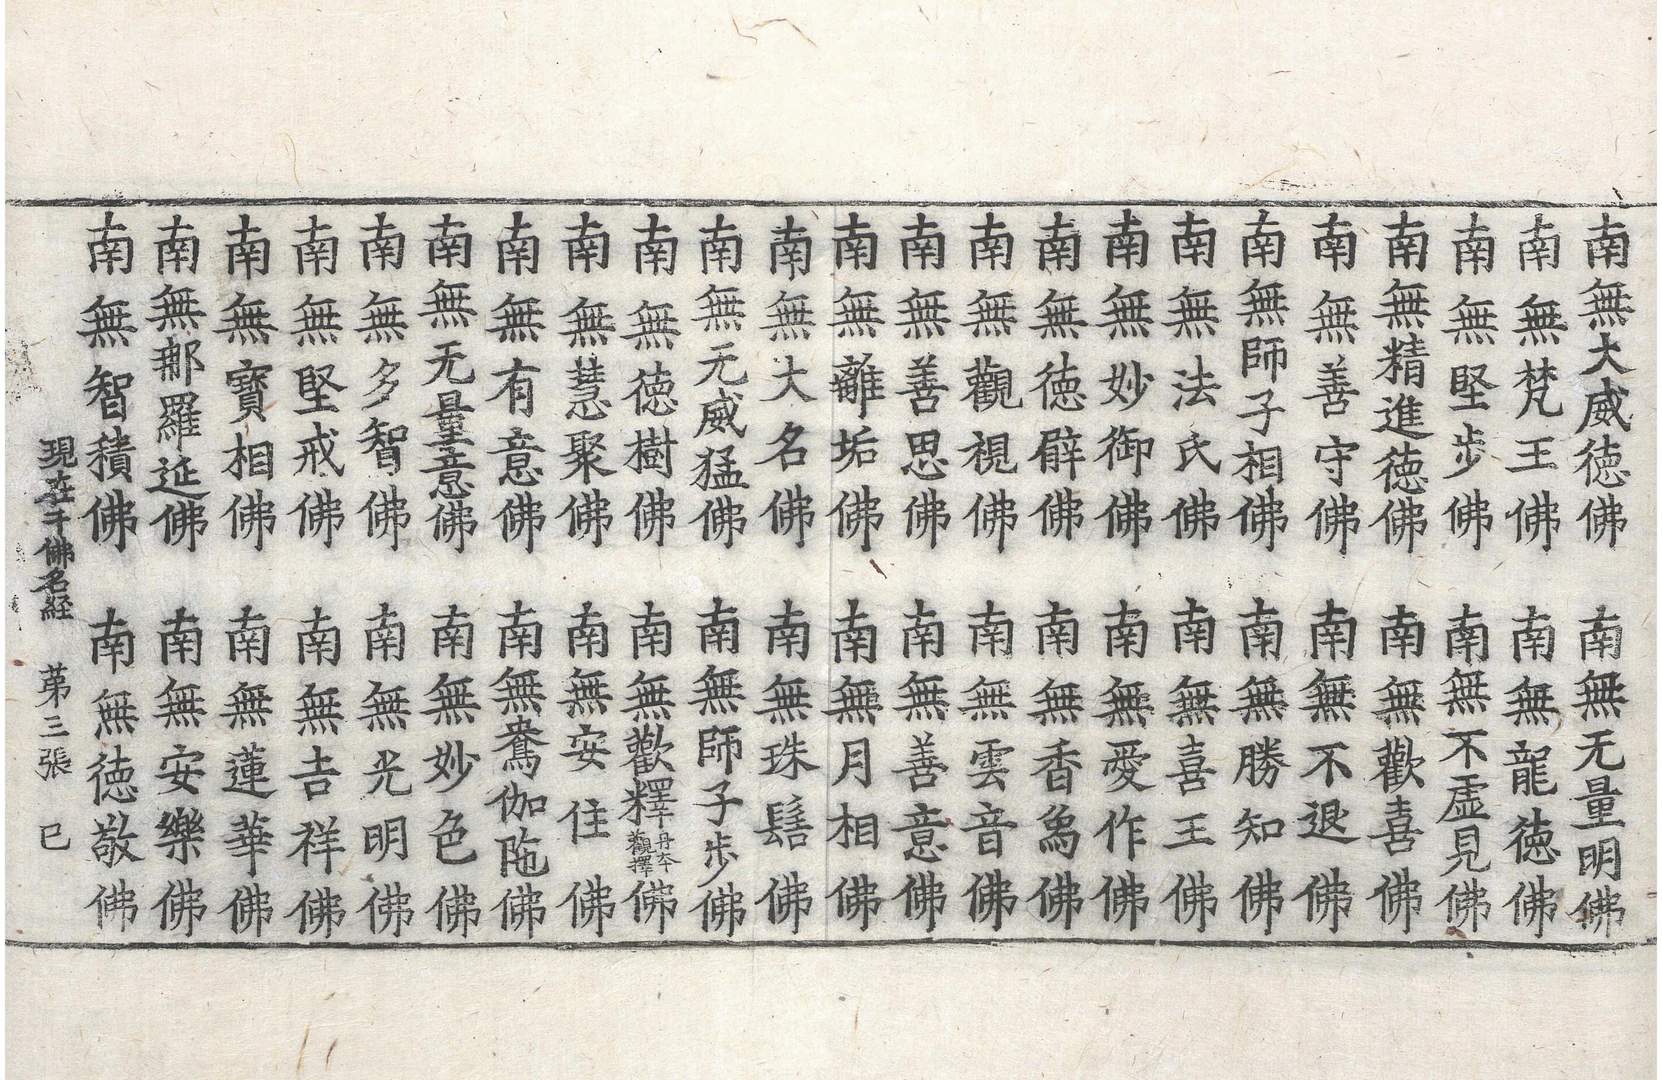 南無大威德佛　南無无量明佛
南無梵王佛　南無龍德佛
南無堅步佛　南無不虛見佛
南無精進德佛　南無歡喜佛
南無善守佛　南無不退佛
南無師子相佛　南無勝知佛
南無法氏佛　南無喜王佛
南無妙御佛　南無愛作佛
南無德臂佛　南無香象佛
南無觀視佛　南無雲音佛
南無善思佛　南無善意佛
南無離垢佛　南無月相佛
南無大名佛　南無珠髻佛
南無无威猛佛　南無師子步佛
南無德樹佛　南無歡釋丹本觀擇佛
南無慧聚佛　南無安住佛
南無有意佛　南無鴦伽陁佛
南無无量意佛　南無妙色佛
南無多智佛　南無光明佛
南無堅戒佛　南無吉祥佛
南無寶相佛　南無蓮華佛
南無那羅延佛　南無安樂佛
南無智積佛　南無德敬佛
現在千佛名経　苐三張　巳